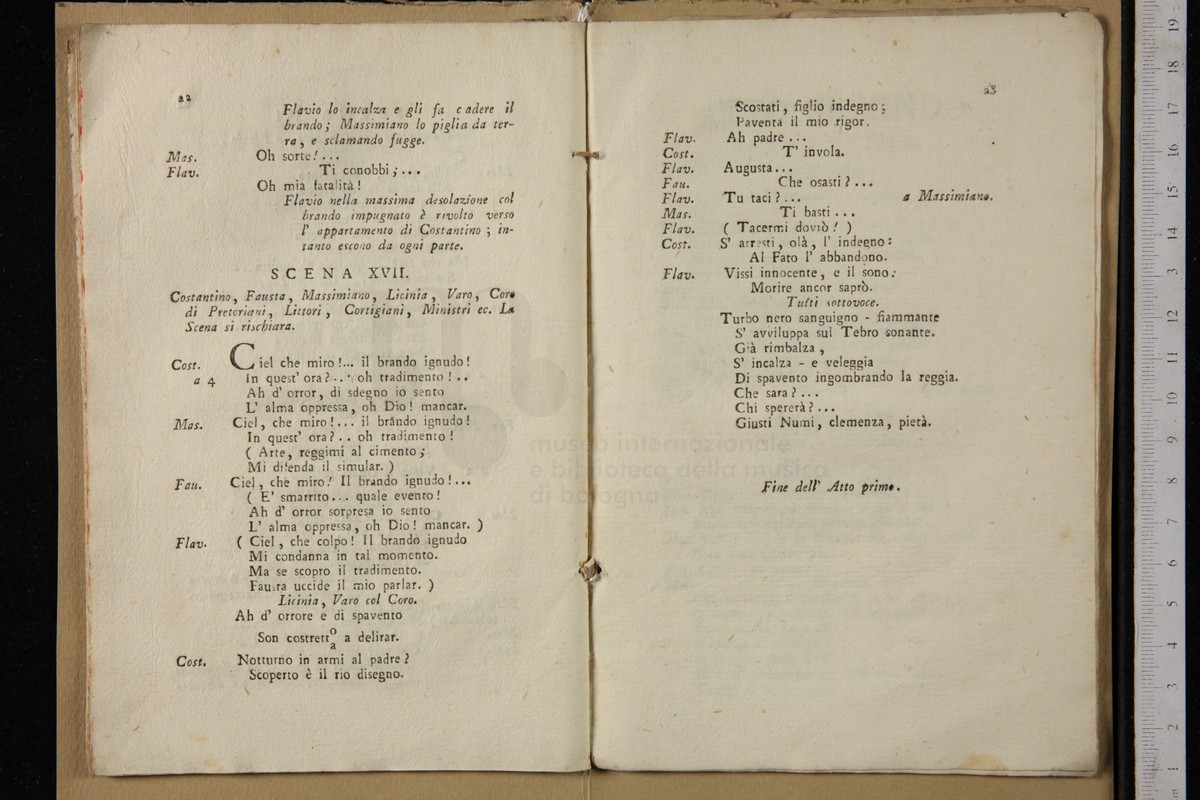 22
Flavio lo incalza e gli fa cadere il
brando; Massimiano lo piglia da ter-
ra, e sclamando fugge.
Mas. Oh sorte!...
Flav. Ti conobbi;...
Oh mia fatalità!
Flavio nella massima desolazione col
brando impugnato è rivolto verso
l' appartamento di Costantino; in-
tanto escono da ogni parte.
SCENA XVII.
Costantino, Fausta, Massimiano, Licinia, Varo, Coro
di Pretoriani, Littori, Cortigiani, Ministri ec. La
Scena si rischiara.
Cost. Ciel che miro!... il brando ignudo!
a 4 In quest' ora?... oh tradimento!..
Ah d' orror, di sdegno io sento
L' alma oppressa, oh Dio! mancar.
Mas. Ciel, che miro!... il brando ignudo!
In quest' ora?.. oh tradimento!
( Arte, reggimi al cimento;
Mi difenda il simular. )
Fau. Ciel, che miro! Il brando ignudo!...
( E' smarrito... quale evento!
Ah d' orror sorpresa io sento
L' alma oppressa, oh Dio! mancar. )
Flav. ( Ciel, che colpo! Il brando ignudo
Mi condanna in tal momento.
Ma se scopro il tradimento.
Fausta uccide il mio parlar. )
Licinia, Varo col Coro.
Ah d' orrore e di spavento
Son costrett o/a a delirar.
Cost. Notturno in armi al padre?
Scoperto è il rio disegno.
23
Scostati, figlio indegno;
Paventa il mio rigor.
Flav. Ah padre...
Cost. T' invola.
Flav. Augusta...
Fau. Che osasti?...
Flav. Tu taci?... a Massimiano.
Mas. Ti basti...
Flav. ( Tacermi dovrò! )
Cost. S' arresti, olà, l' indegno:
Al Fato l' abbandono.
Flav. Vissi innocente, e il sono:
Morire ancor saprò.
Tutti sottovoce.
Turbo nero sanguigno - fiammante
S' avviluppa sul Tebro sonante.
Già rimbalza,
S' incalza - e veleggia
Di spavento ingombrando la reggia.
Che sara?...
Chi spererà?...
Giusti Numi, clemenza, pietà.
museo internazionale
e biblioteca della musica
di bologna
Fine dell' Atto primo.
19
18
17
16
15
14
13
12
11
10
9
8
7
6
5
4
3
2
1